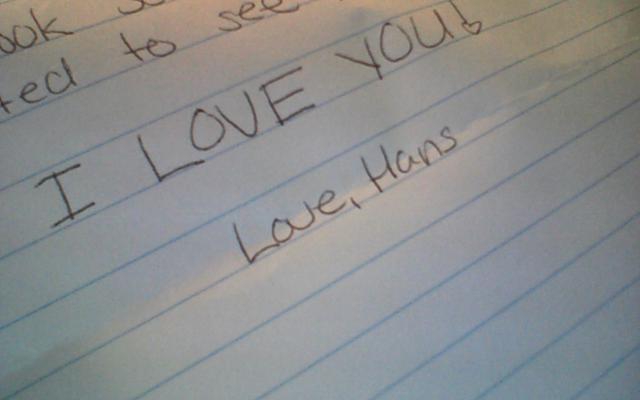 ook
ted to see
I LOVE YOU!
Love, Hans